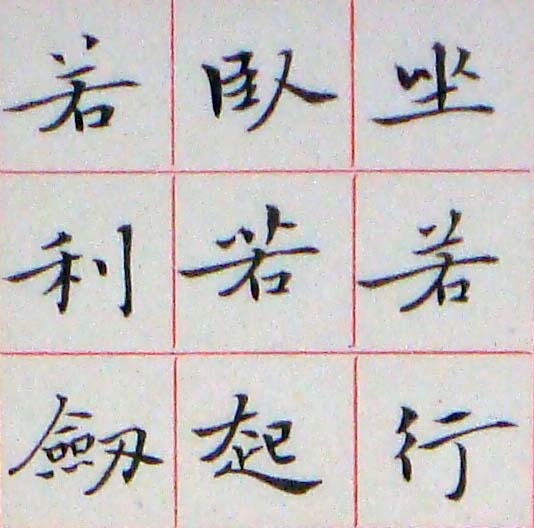 坐若行
臥若起
若利劔